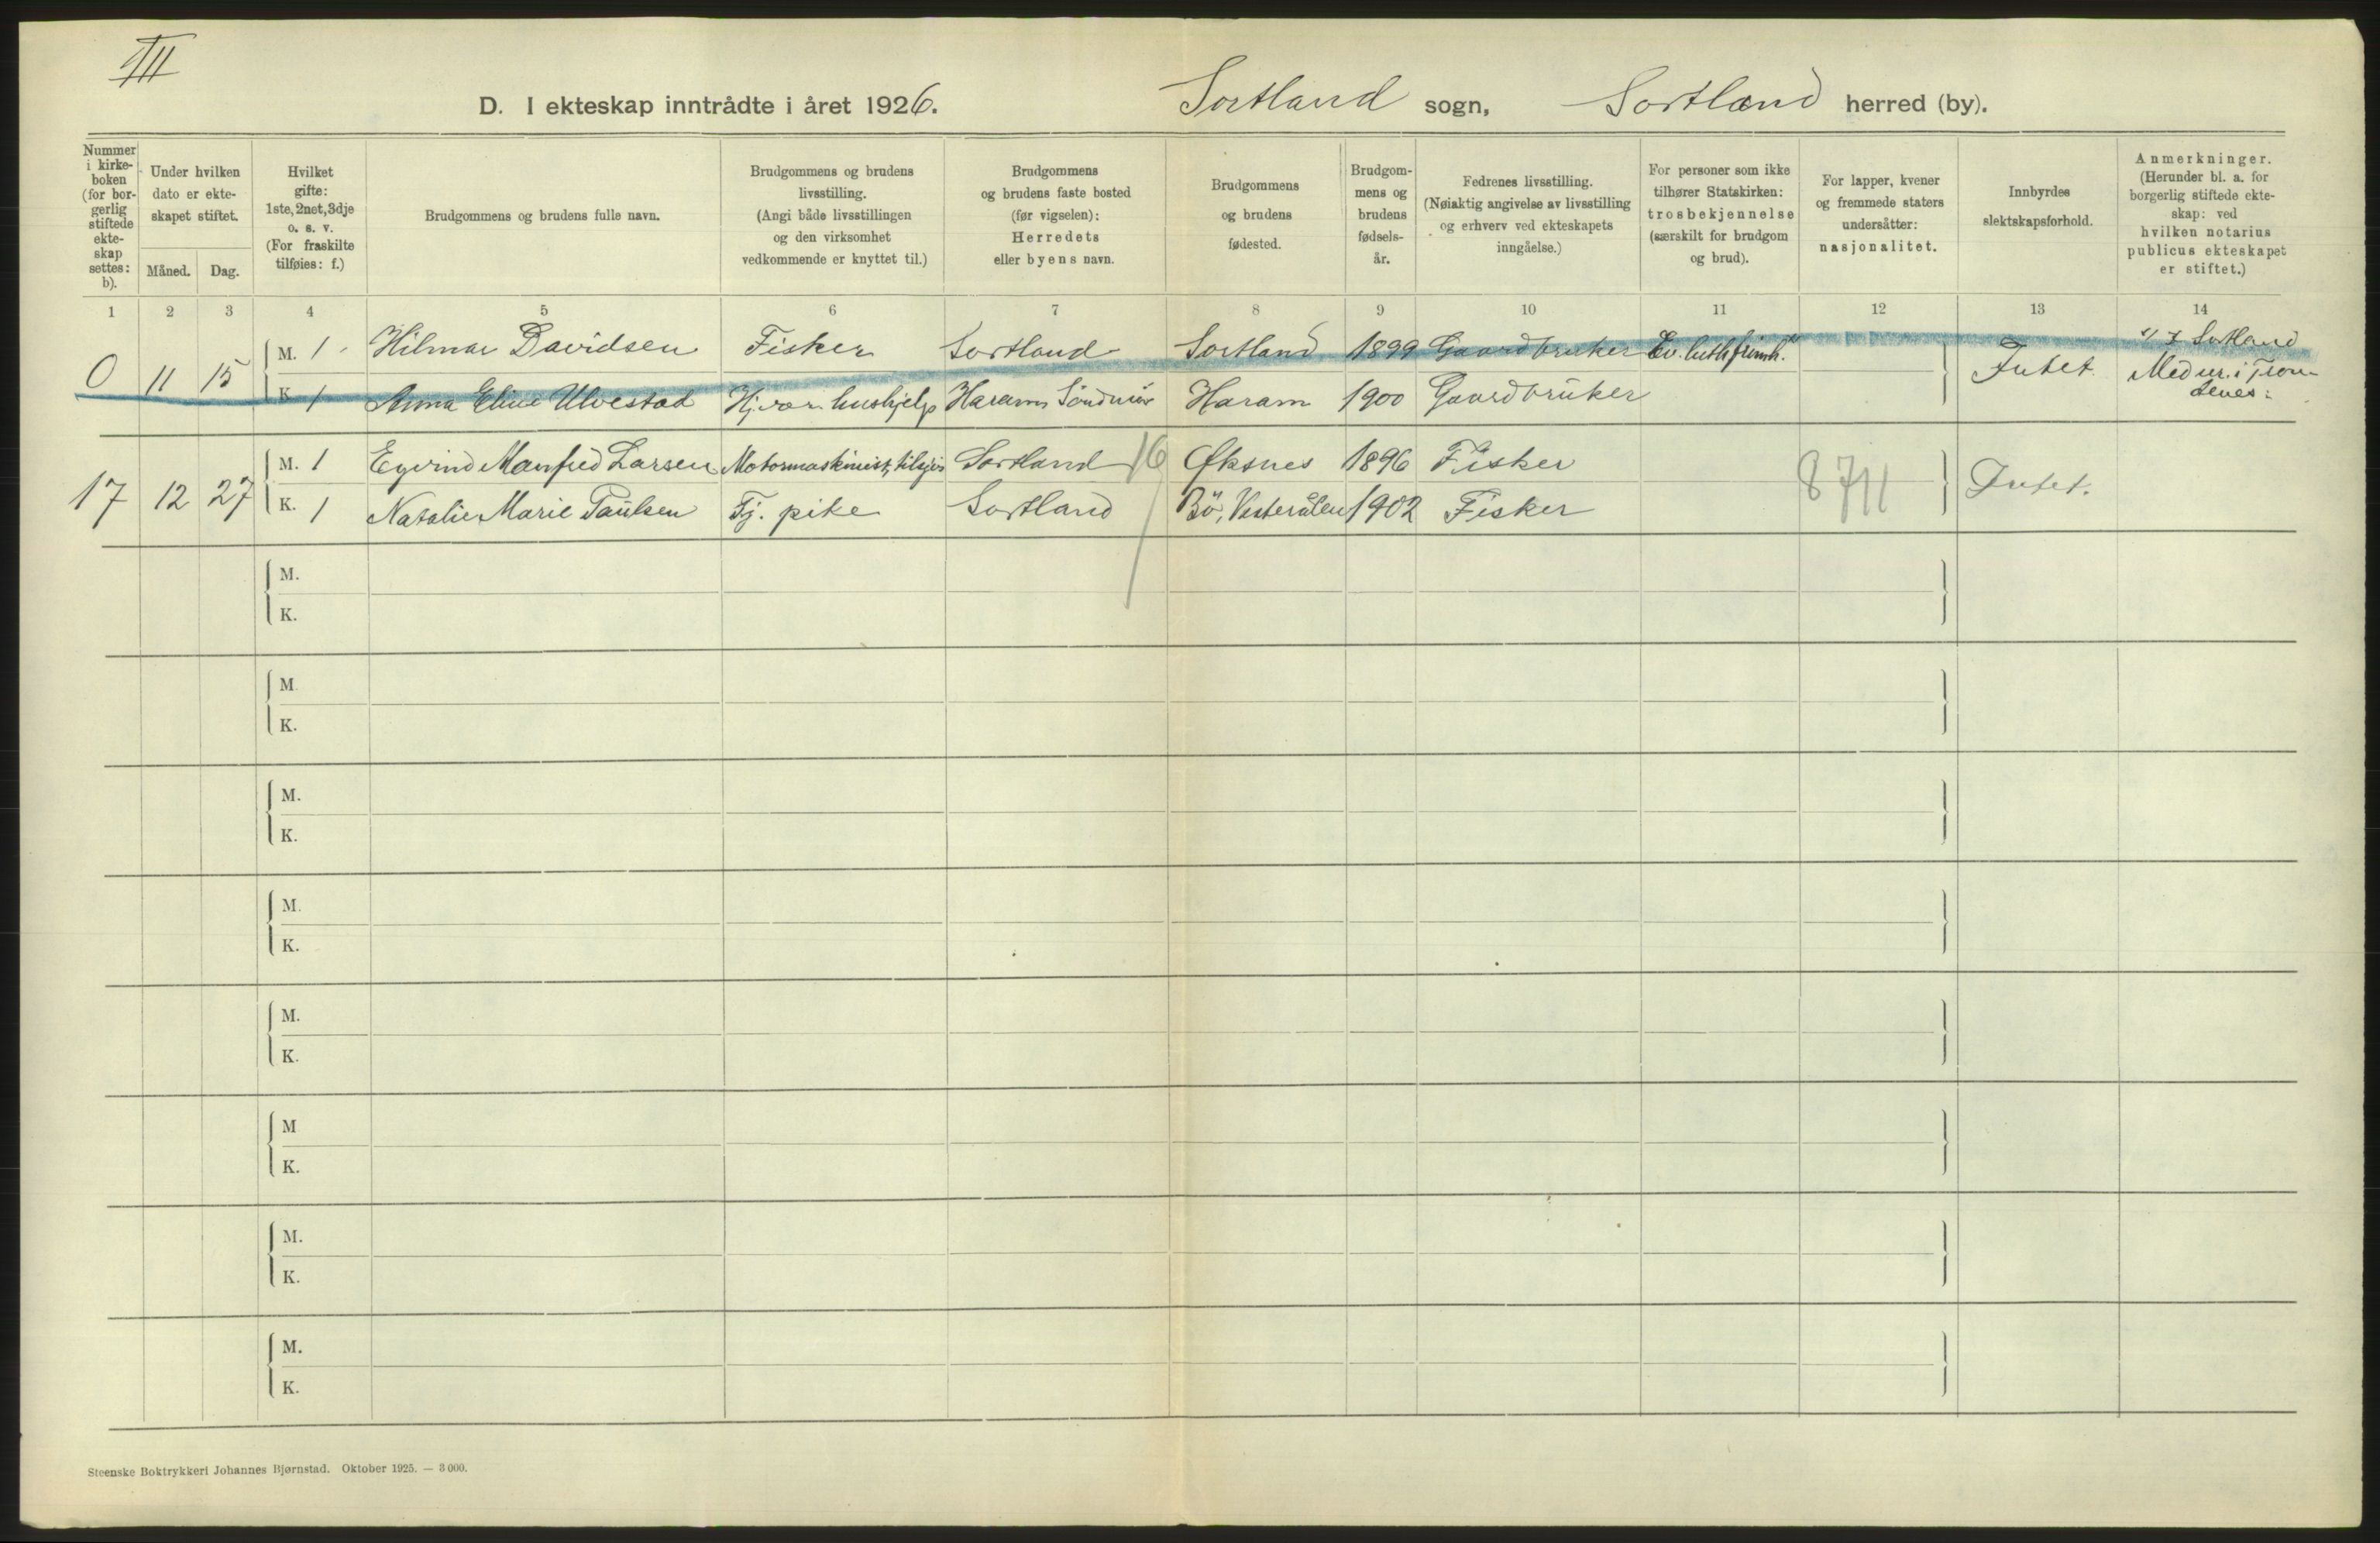 III
D. I ekteskap inntrådte i året 1926. Sortland sogn, Sortland herred (by).
Nummer i kirke-boken (for bor-gerlig stiftede ekte-skap settes: b).
Under hvilken dato er ekte-skapet stiftet.
Måned. Dag.
Hvilket gifte: 1ste, 2net, 3dje o. s. v. (For fraskilte tilføies: f.)
Brudgommens og brudens fulle navn.
Brudgommens og brudens livsstilling. (Angi både livsstillingen og den virksomhet vedkommende er knyttet til.)
Brudgommens og brudens faste bosted (før vigselen): Herredets eller byens navn.
Brudgommens og brudens fødested.
Brudgom-mens og brudens fødsels-år.
Fedrenes livsstilling. (Nøiaktig angivelse av livsstilling og erhverv ved ekteskapets inngåelse.)
For personer som ikke tilhører Statskirken: trosbekjennelse (særskilt for brudgom og brud).
For lapper, kvener og fremmede staters undersåtter: nasjonalitet.
Innbyrdes slektskapsforhold.
Anmerkninger. (Herunder bl. a. for borgerlig stiftede ekte-skap: ved hvilken notarius publicus ekteskapet er stiftet.)
1 2 3 4 5 6 7 8 9 10 11 12 13 14
0 11 15 M. 1 Hilmar Davidsen Fisker Sortland Sortland 1899 Gaardbruker Ev. luth frimh. Intet. Sortland
K. 1 Anna Eline Ulvestad Hj. vær. hushjelp Haram, Söndmör Haram 1900 Gaardbruker Med ur. i Tron-denes.
17 12 27 M. 1 Eyvind Manfred Larsen Motormaskinist, tilsjös Sortland 16 Øksnes 1896 Fisker 8711 Intet.
K. 1 Natalie Marie Paulsen Tj. pike Sortland Bö, Vesterålen 1902 Fisker
M.
K.
M.
K.
M.
K.
M.
K.
M.
K.
M
K.
M.
K.
M.
K.
Steenske Boktrykkeri Johannes Bjørnstad. Oktober 1925. — 3 000.